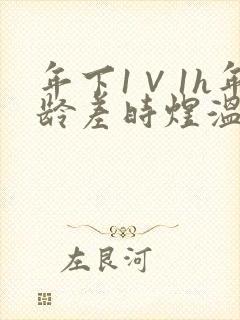 年下1V1h年
龄差时煜温
左良河